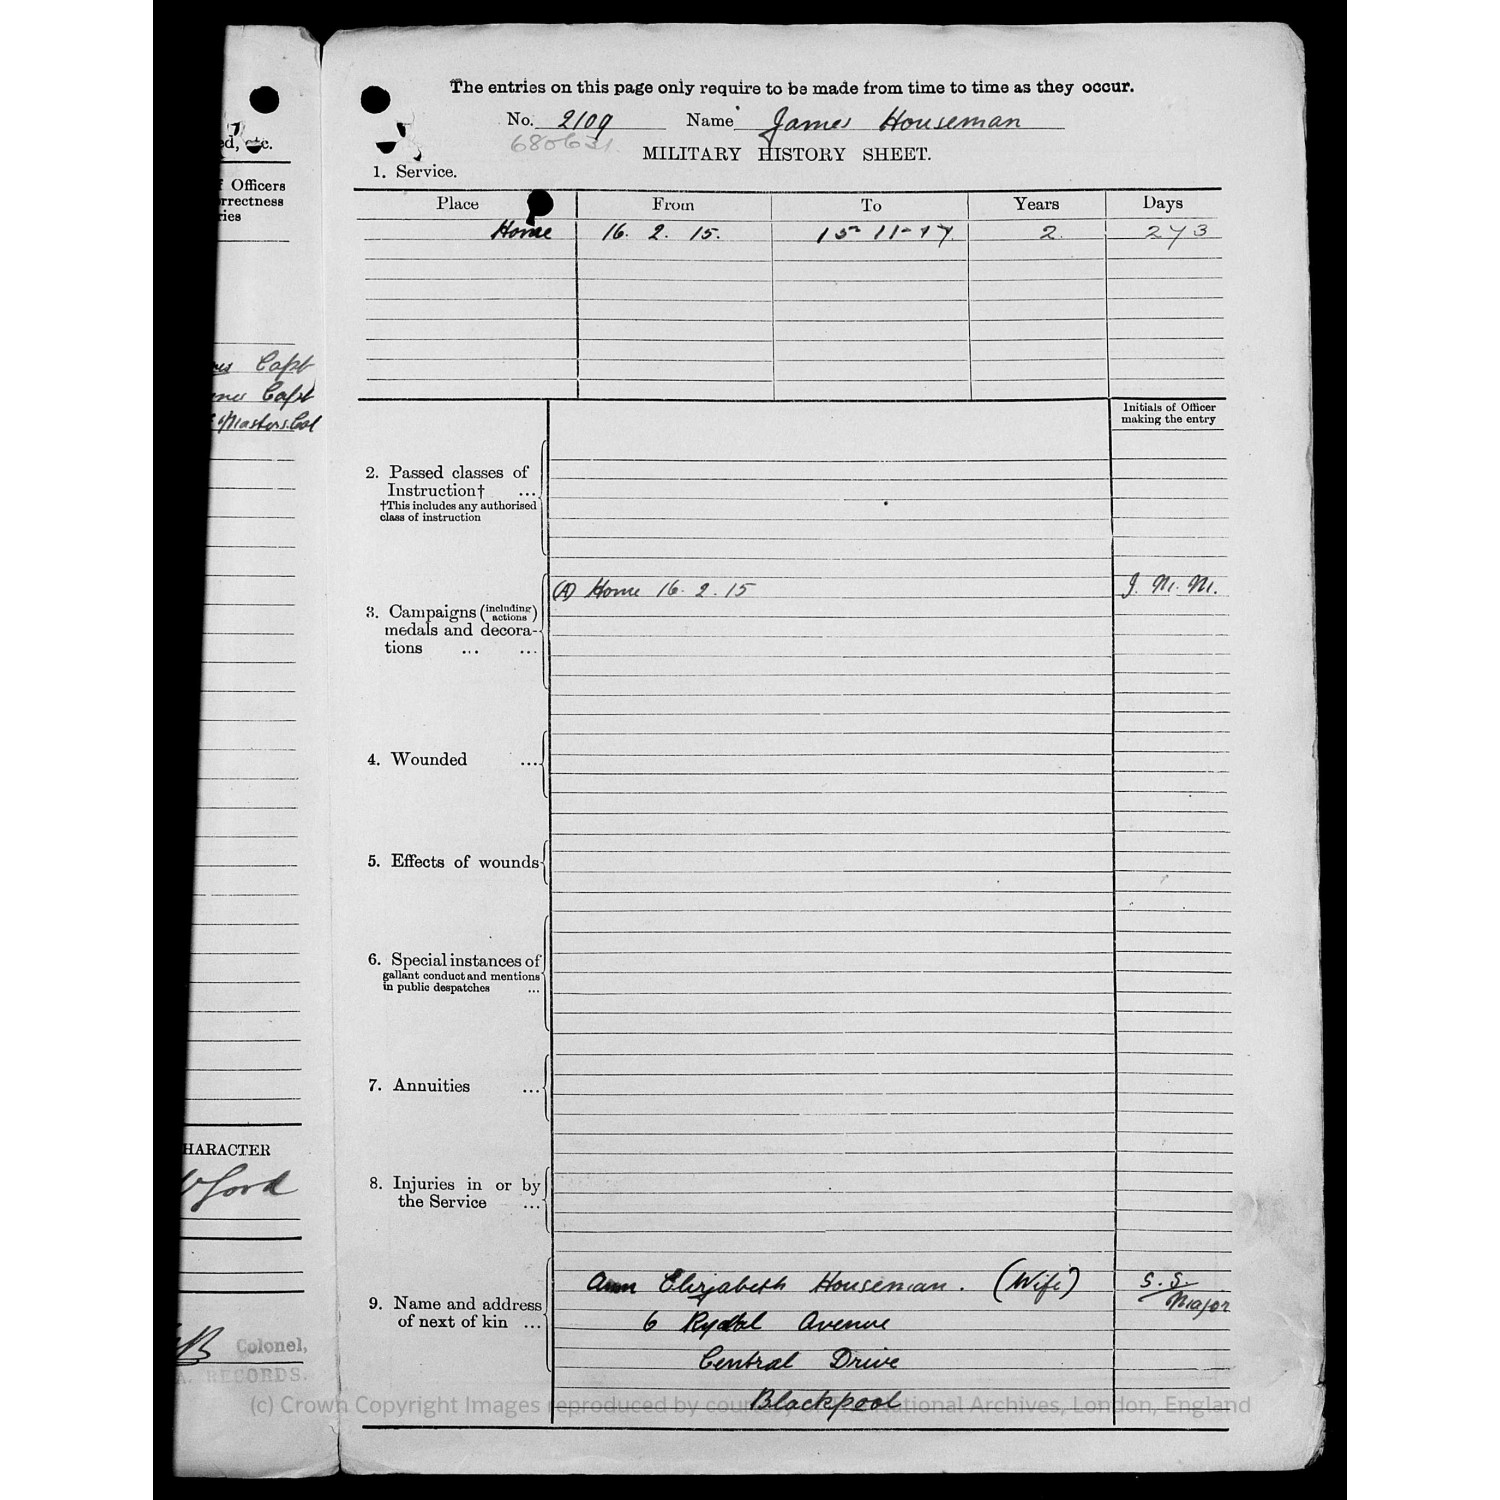 The entries on this page only require to be made from time to time as they occur.
No. 2109 Name James Houseman
680631.
MILITARY HISTORY SHEET.
1. Service.
Place From To Years Days
Home 16. 2. 15. 15-11-17. 2. 273
Initials of Officer
making the entry
2. Passed classes of
Instruction† ...
†This includes any authorised
class of instruction
(A) Home 16. 2. 15 J. M. M.
3. Campaigns (including actions)
medals and decora-
tions ... ...
4. Wounded ...
5. Effects of wounds
6. Special instances of
gallant conduct and mentions
in public despatches ...
7. Annuities ...
8. Injuries in or by
the Service ...
9. Name and address
of next of kin ...
Ann Elizabeth Houseman. (Wife) S. S. Major
6 Rydal Avenue
Central Drive
Blackpool
d, etc.
f Officers
rrectness
ries
Capt
Capt
Masters. Col
HARACTER
Colonel,
A. RECORDS.
(c) Crown Copyright Images reproduced by courtesy of The National Archives, London, England